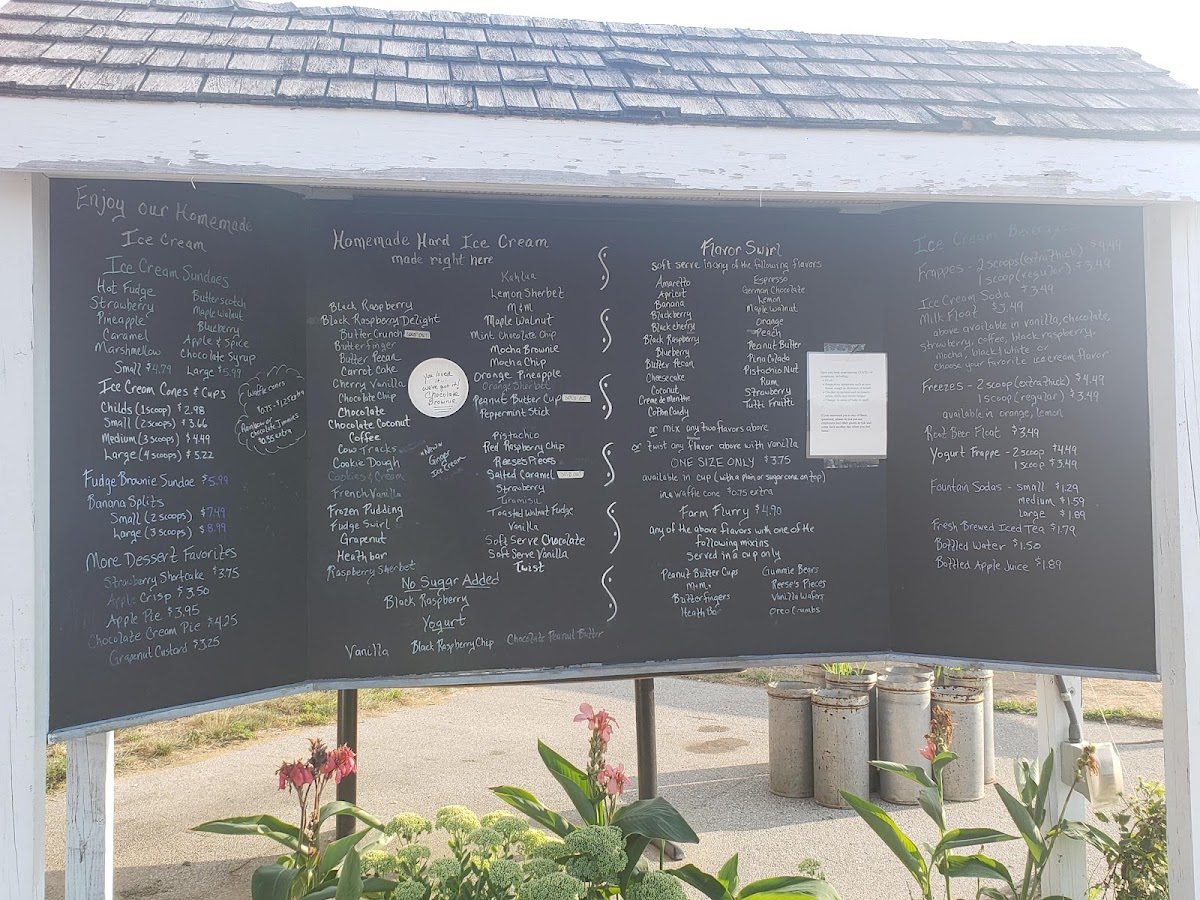 Enjoy our Homemade
Ice Cream
Ice Cream Sundaes
Hot Fudge
Strawberry
Pineapple
Caramel
Marshmallow
Butterscotch
Maple Walnut
Blueberry
Apple & Spice
Chocolate Syrup
Small $4.79 Large $5.99
Ice Cream Cones & Cups
Childs (1 scoop) $2.98
Small (2 scoops) $3.66
Medium (3 scoops) $4.49
Large (4 scoops) $5.22
Waffle cones
$0.75-$1.25 extra
Rainbow or
Chocolate Jimmies
$0.35 extra
Fudge Brownie Sundae $5.99
Banana Splits
Small (2 scoops) $7.49
Large (3 scoops) $8.99
More Dessert Favorites
Strawberry Shortcake $3.75
Apple Crisp $3.50
Apple Pie $3.95
Chocolate Cream Pie $4.25
Grapenut Custard $3.25
Homemade Hard Ice Cream
made right here
Black Raspberry
Black Raspberry Delight
Butter Crunch SOLD OUT
Butterfinger
Butter Pecan
Carrot Cake
Cherry Vanilla
Chocolate Chip
Chocolate
Chocolate Coconut
Coffee
Cow Tracks
Cookie Dough
Cookies & Cream
French Vanilla
Frozen Pudding
Fudge Swirl
Grapenut
Heath bar
Raspberry Sherbet
You loved it,
we've got it!
Chocolate
Brownie
*New*
Ginger
Ice Cream
Kahlua
Lemon Sherbet
M&M
Maple Walnut
Mint Chocolate Chip
Mocha Brownie
Mocha Chip
Orange Pineapple
Orange Sherbet
Peanut Butter Cup SOLD OUT
Peppermint Stick
Pistachio
Red Raspberry Chip
Reese's Pieces
Salted Caramel SOLD OUT
Strawberry
Tiramisu
Toasted Walnut Fudge
Vanilla
Soft Serve Chocolate
Soft Serve Vanilla
Twist
No Sugar Added
Black Raspberry
Yogurt
Vanilla Black Raspberry Chip Chocolate Peanut Butter
Flavor Swirl
soft serve in any of the following flavors
Amaretto
Apricot
Banana
Blackberry
Black cherry
Black Raspberry
Blueberry
Butter Pecan
Cheesecake
Coconut
Creme de Menthe
Cotton Candy
Espresso
German Chocolate
Lemon
Maple Walnut
Orange
Peach
Peanut Butter
Pina Colada
Pistachio Nut
Rum
Strawberry
Tutti Fruitti
or mix any two flavors above
or twist any flavor above with vanilla
ONE SIZE ONLY $3.75
available in cup (with a plain or sugar cone on top)
in a waffle cone $0.75 extra
Farm Flurry $4.90
any of the above flavors with one of the
following mixins
Served in a cup only
Peanut Butter Cups
M&M's
Butterfingers
Heath Bar
Gummie Bears
Reese's Pieces
Vanilla Wafers
Oreo Crumbs
Ice Cream Beverages
Frappes - 2 scoops (extra thick) $4.49
1 scoop (regular) $3.49
Ice Cream Soda $3.49
Milk Float $3.49
above available in vanilla, chocolate,
strawberry, coffee, black raspberry,
mocha, black & white or
choose your favorite ice cream flavor
Freezes - 2 scoop (extra thick) $4.49
1 scoop (regular) $3.49
available in orange, lemon
Root Beer Float $3.49
Yogurt Frappe - 2 scoop $4.49
1 scoop $3.49
Fountain Sodas - small $1.29
medium $1.59
Large $1.89
Fresh Brewed Iced Tea $1.79
Bottled Water $1.50
Bottled Apple Juice $1.89